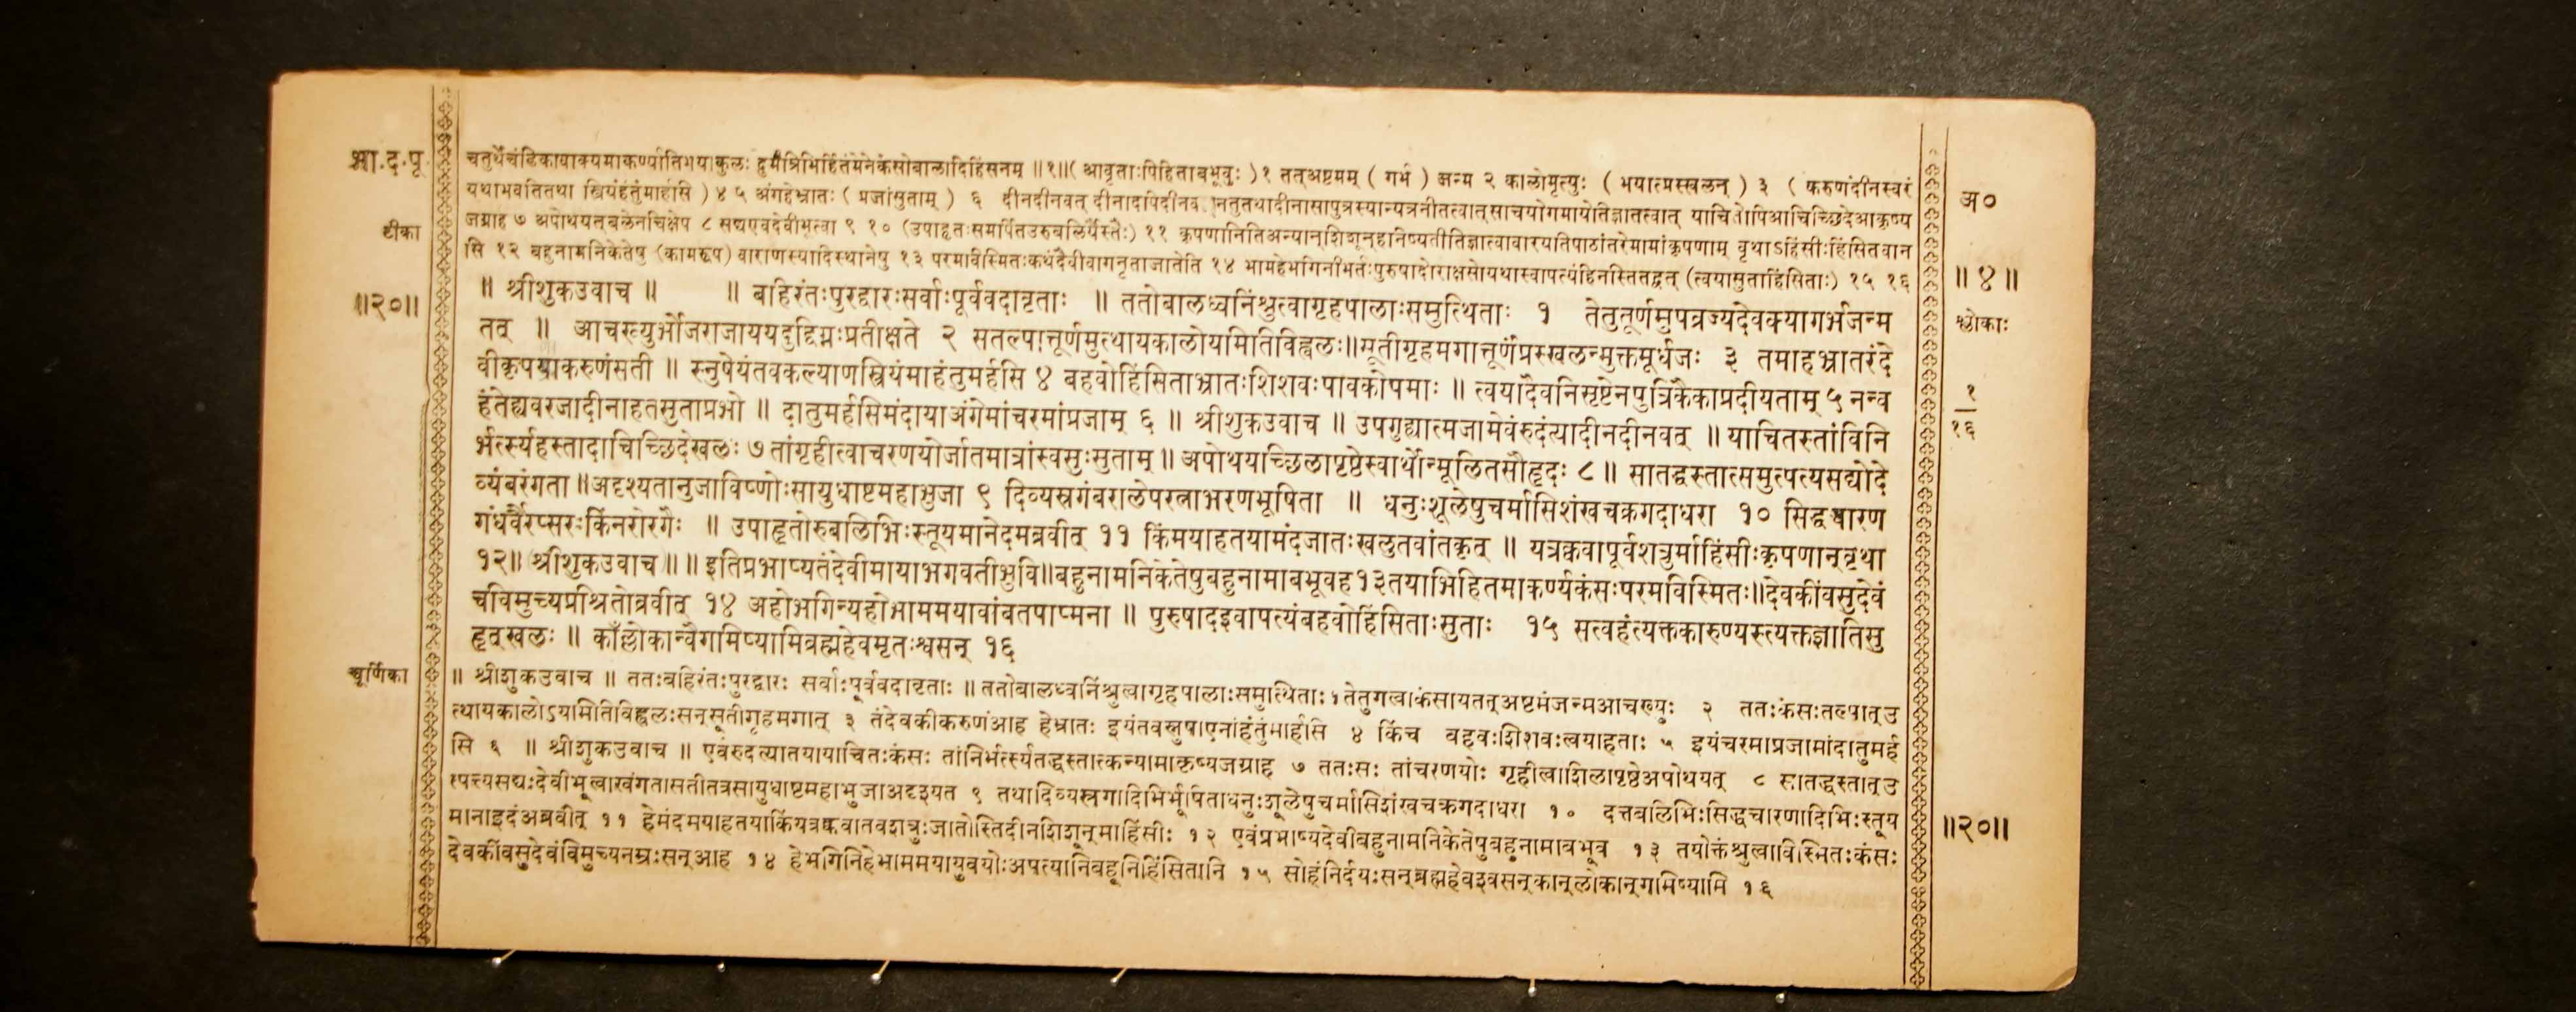 भा.द.पू
चतुर्थेचंडिकावाक्यमाकर्ण्यातिभयाकुलः दुर्मंत्रिभिर्हितंमेनेकंसोबालादिहिंसनम् ॥१॥( आवृताःपिहिताबभूवुः )१ तत्अष्टमम् ( गर्भ ) जन्म २ कालोमृत्युः ( भयात्प्रस्खलन् ) ३ ( करुणंदीनस्वरं
यथाभवतितथा स्त्रियंहंतुंमार्हसि ) ४ ५ अंगहेभ्रातः ( प्रजांसुताम् ) ६ दीनदीनवत् दीनादपिदीनव नतुतथादीनासापुत्रस्यान्यत्रनीतत्वात्साचयोगमायेतिज्ञातत्वात् याचितोपिआचिच्छिदेआकृष्य
टीका
जग्राह ७ अपोथयत्बलेनचिक्षेप ८ सद्यएवदेवीभूत्वा ९ १० (उपाहृतःसमर्पितउरुबलिर्यैस्तैः) ११ कृपणानितिअन्यान्शिशून्हनिष्यतीतिज्ञात्वावारयतिपाठांतरेमामांकृपणाम् वृथाऽहिंसीःहिंसितवान
सि १२ बहुनामनिकेतेषु (कामरूप) वाराणस्यादिस्थानेषु १३ परमविस्मितःकथंदैवीवागनृताजातेति १४ भामहेभगिनीभर्तःपुरुषादोराक्षसोयथास्वापत्यंहिनस्तितद्वत् (त्वयासुताहिंसिताः) १५ १६
अ०
॥ ४ ॥
॥२०॥
॥ श्रीशुकउवाच ॥ ॥ बहिरंतःपुरद्वारःसर्वाःपूर्ववदावृताः ॥ ततोबालध्वनिंश्रुत्वागृहपालाःसमुत्थिताः १ तेतुतूर्णमुपव्रज्यदेवक्यागर्भजन्म
श्लोकाः
तत् ॥ आचख्युर्भोजराजाययदुद्विग्नःप्रतीक्षते २ सतल्पात्तूर्णमुत्थायकालोयमितिविह्वलः॥सूतीगृहमगात्तूर्णंप्रस्खलन्मुक्तमूर्धजः ३ तमाहभ्रातरंदे
वीकृपयाकरुणंसती ॥ स्नुषेयंतवकल्याणस्त्रियंमाहंतुमर्हसि ४ बहवोहिंसिताभ्रातःशिशवःपावकोपमाः ॥ त्वयादैवनिसृष्टेनपुत्रिकैकाप्रदीयताम् ५ नन्व
१
१६
हंतेह्यवरजादीनाहतसुताप्रभो ॥ दातुमर्हसिमंदायाअंगेमांचरमांप्रजाम् ६ ॥ श्रीशुकउवाच ॥ उपगुह्यात्मजामेवंरुदंत्यादीनदीनवत् ॥ याचितस्तांविनि
र्भर्त्स्यहस्तादाचिच्छिदेखलः ७ तांगृहीत्वाचरणयोर्जातमात्रांस्वसुःसुताम् ॥ अपोथयाच्छिलापृष्ठेस्वार्थोन्मूलितसौहृदः ८ ॥ सातद्धस्तात्समुत्पत्यसद्योदे
व्यंबरंगता ॥अदृश्यतानुजाविष्णोःसायुधाष्टमहाभुजा ९ दिव्यस्रगंबरालेपरत्नाभरणभूषिता ॥ धनुःशूलेषुचर्मासिशंखचक्रगदाधरा १० सिद्धचारण
गंधर्वैरप्सरःकिंनरोरगैः ॥ उपाहृतोरुबलिभिःस्तूयमानेदमब्रवीत् ११ किंमयाहतयामंदजातःखलुतवांतकृत् ॥ यत्रक्ववापूर्वशत्रुर्माहिंसीःकृपणान्वृथा
१२॥ श्रीशुकउवाच ॥ ॥ इतिप्रभाष्यतंदेवीमायाभगवतीभुवि॥बहुनामनिकेतेषुबहुनामाबभूवह१३तयाभिहितमाकर्ण्यकंसःपरमविस्मितः॥देवकींवसुदेवं
चविमुच्यप्रश्रितोब्रवीत् १४ अहोभगिन्यहोभाममयावांबतपाप्मना ॥ पुरुषादइवापत्यंबहवोहिंसिताःसुताः १५ सत्वहंत्यक्तकारुण्यस्त्यक्तज्ञातिसु
हृत्खलः ॥ काँल्लोकान्वैगमिष्यामिब्रह्महेवमृतःश्वसन् १६
चूर्णिका
॥ श्रीशुकउवाच ॥ ततःबहिरंतःपुरद्वारः सर्वाःपूर्ववदावृताः ॥ ततोबालध्वनिंश्रुत्वागृहपालाःसमुत्थिताः १ तेतुगत्वाकंसायतत्अष्टमंजन्मआचख्युः २ ततःकंसःतल्पात्उ
त्थायकालोऽयमितिविह्वलःसन्सूतीगृहमगात् ३ तंदेवकीकरुणंआह हेभ्रातः इयंतवस्नुषाएनांहंतुंमार्हसि ४ किंच बहवःशिशवःत्वयाहताः ५ इयंचरमाप्रजामांदातुमर्ह
सि ६ ॥ श्रीशुकउवाच ॥ एवंरुदत्यातयायाचितःकंसः तांनिर्भर्त्स्यतद्धस्तात्कन्यामाकृष्यजग्राह ७ ततःसः तांचरणयोः गृहीत्वाशिलापृष्ठेअपोथयत् ८ सातद्धस्तात्उ
त्पत्यसद्यःदेवीभूत्वाखंगतासतीतत्रसायुधाष्टमहाभुजाअदृश्यत ९ तथादिव्यस्रगादिभिर्भूषिताधनुःशूलेषुचर्मासिशंखचक्रगदाधरा १० दत्तबलिभिःसिद्धचारणादिभिःस्तूय
मानाइदंअब्रवीत् ११ हेमंदमयाहतयाकिंयत्रक्कवातवशत्रुःजातोस्तिदीनशिशून्माहिंसीः १२ एवंप्रभाष्यदेवीबहुनामनिकेतेषुबहुनामाबभूव १३ तयोक्तंश्रुत्वाविस्मितःकंसः
॥२०॥
देवकींवसुदेवंविमुच्यनम्रःसन्आह १४ हेभगिनिहेभाममयायुवयोःअपत्यानिबहूनिहिंसितानि १५ सोहंनिर्दयःसन्ब्रह्महेवश्वसन्कान्लोकान्गमिष्यामि १६